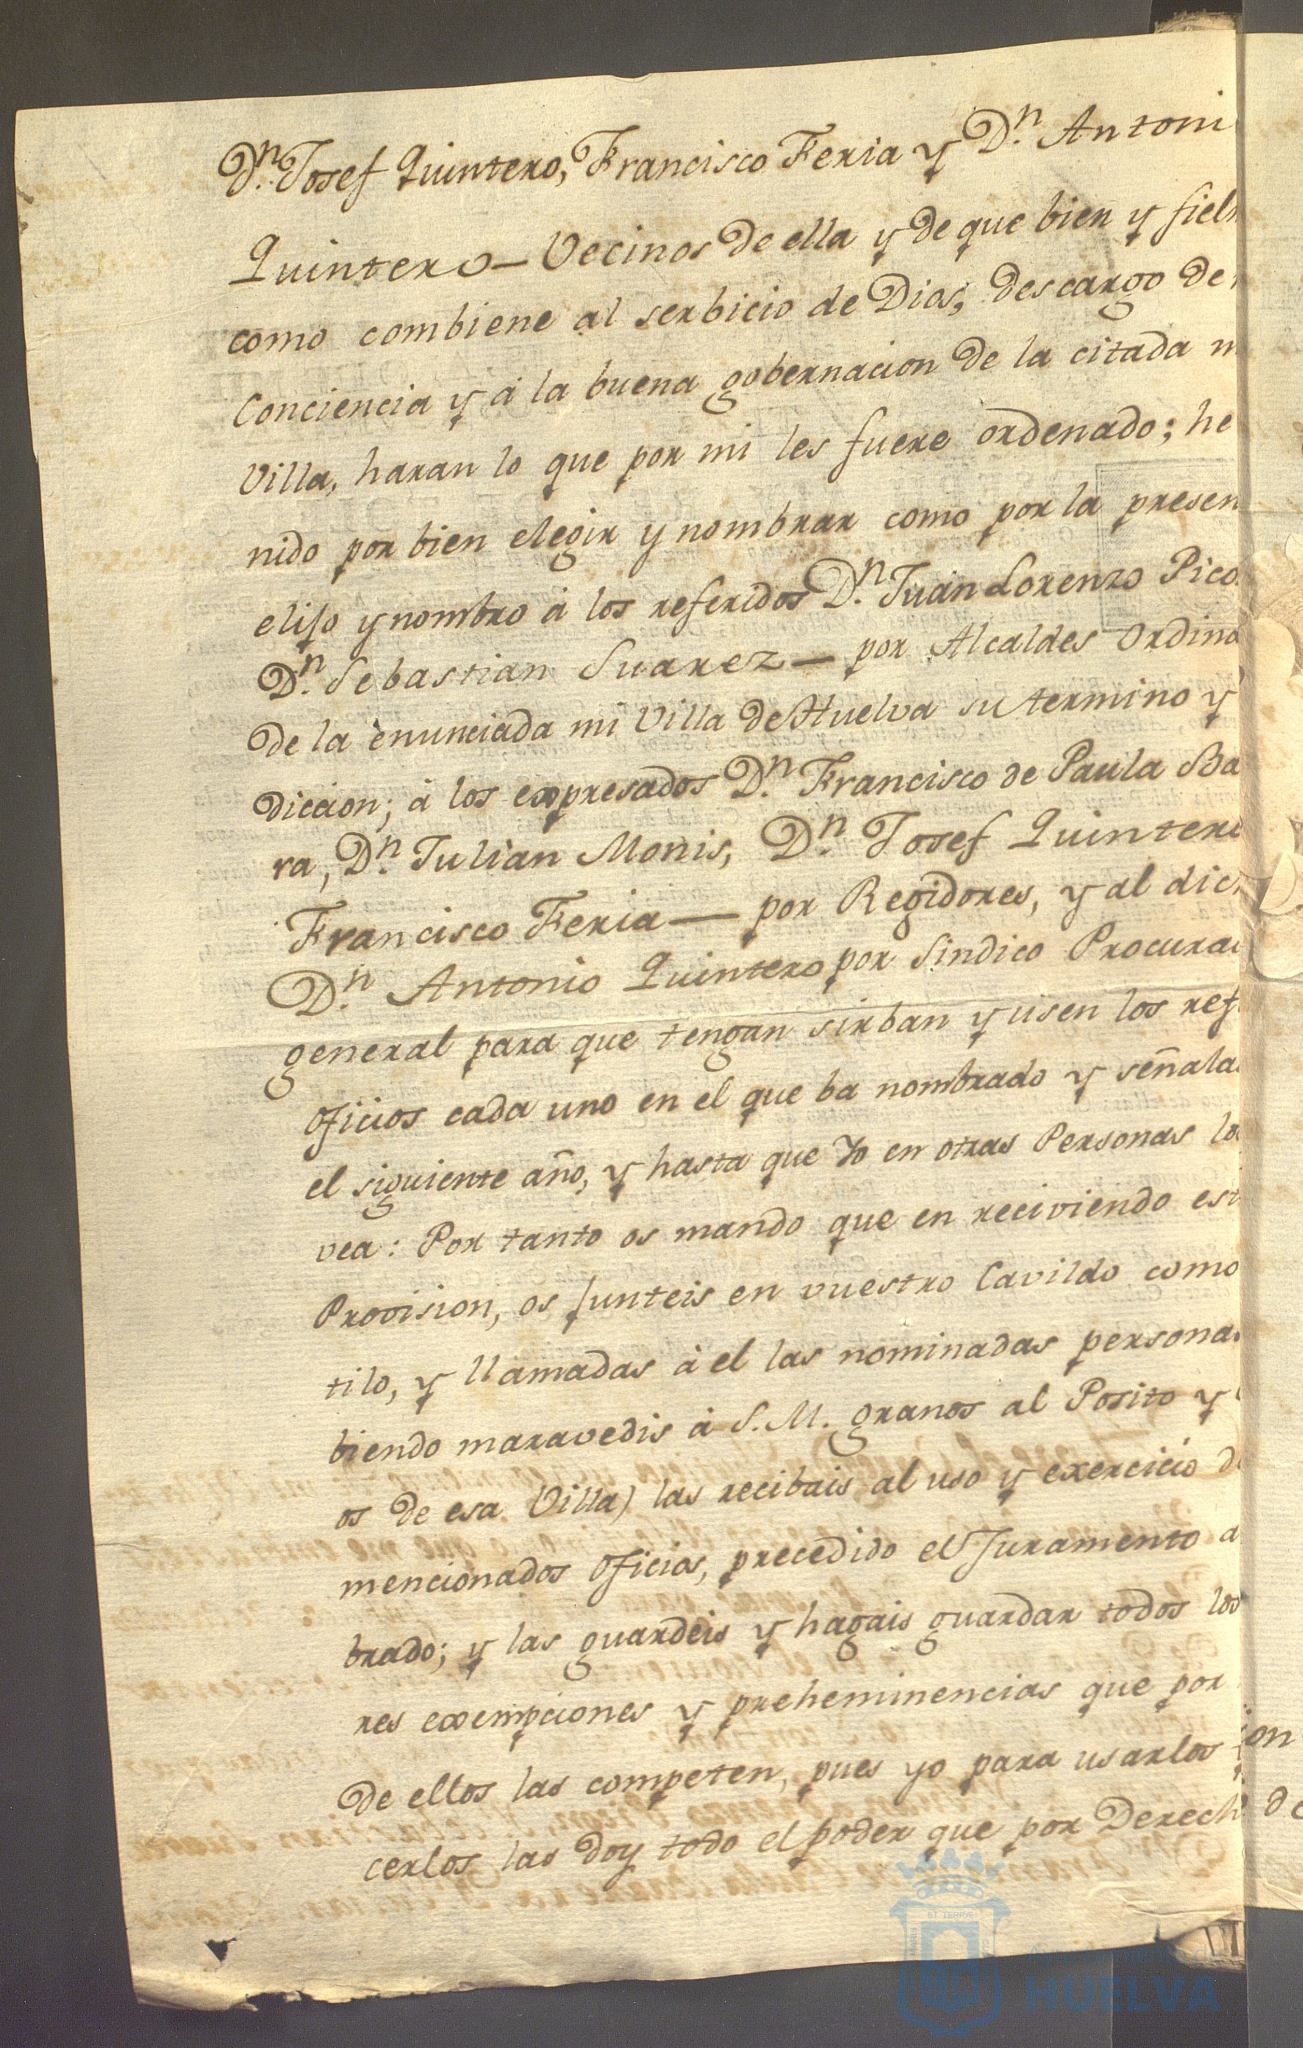 Dn. Josef Quintero, Francisco Feria y Dn. Antoni
Quintero — Vecinos de ella y de que bien y fielm
como combiene al serbicio de Dios, descargo de
Conciencia y á la buena gobernacion de la citada m
Villa, haran lo que por mi les fuere ordenado; he
nido por bien elegir y nombrar como por la presen
elijo y nombro á los referidos Dn. Juan Lorenzo Pico
Dn. Sebastian Suarez — por Alcaldes Ordina
de la enunciada mi Villa de Huelva su termino y
diccion; á los expresados Dn. Francisco de Paula Ba
ra, Dn. Julian Monis, Dn. Josef Quintero
Francisco Feria — por Regidores, y al dic
Dn. Antonio Quintero por Sindico Procurad
general para que tengan sirban y usen los ref
oficios cada uno en el que ba nombrado y señala
el siguiente año, y hasta que Yo en otras Personas lo
vea: Por tanto os mando que en reciviendo est
Provision, os junteis en vuestro Cavildo como
tilo, y llamadas á el las nominadas personas
biendo maravedis á S. M. granos al Posito y
os de esa Villa) las recibais al uso y exercicio d
mencionados oficios, precedido el Juramento a
brado; y las guardeis y hagais guardar todos los
res exempciones y preheminencias que por
de ellos las competen, pues yo para usarlos
cerlos las doy todo el poder que por Derech
ion
de
HUELVA